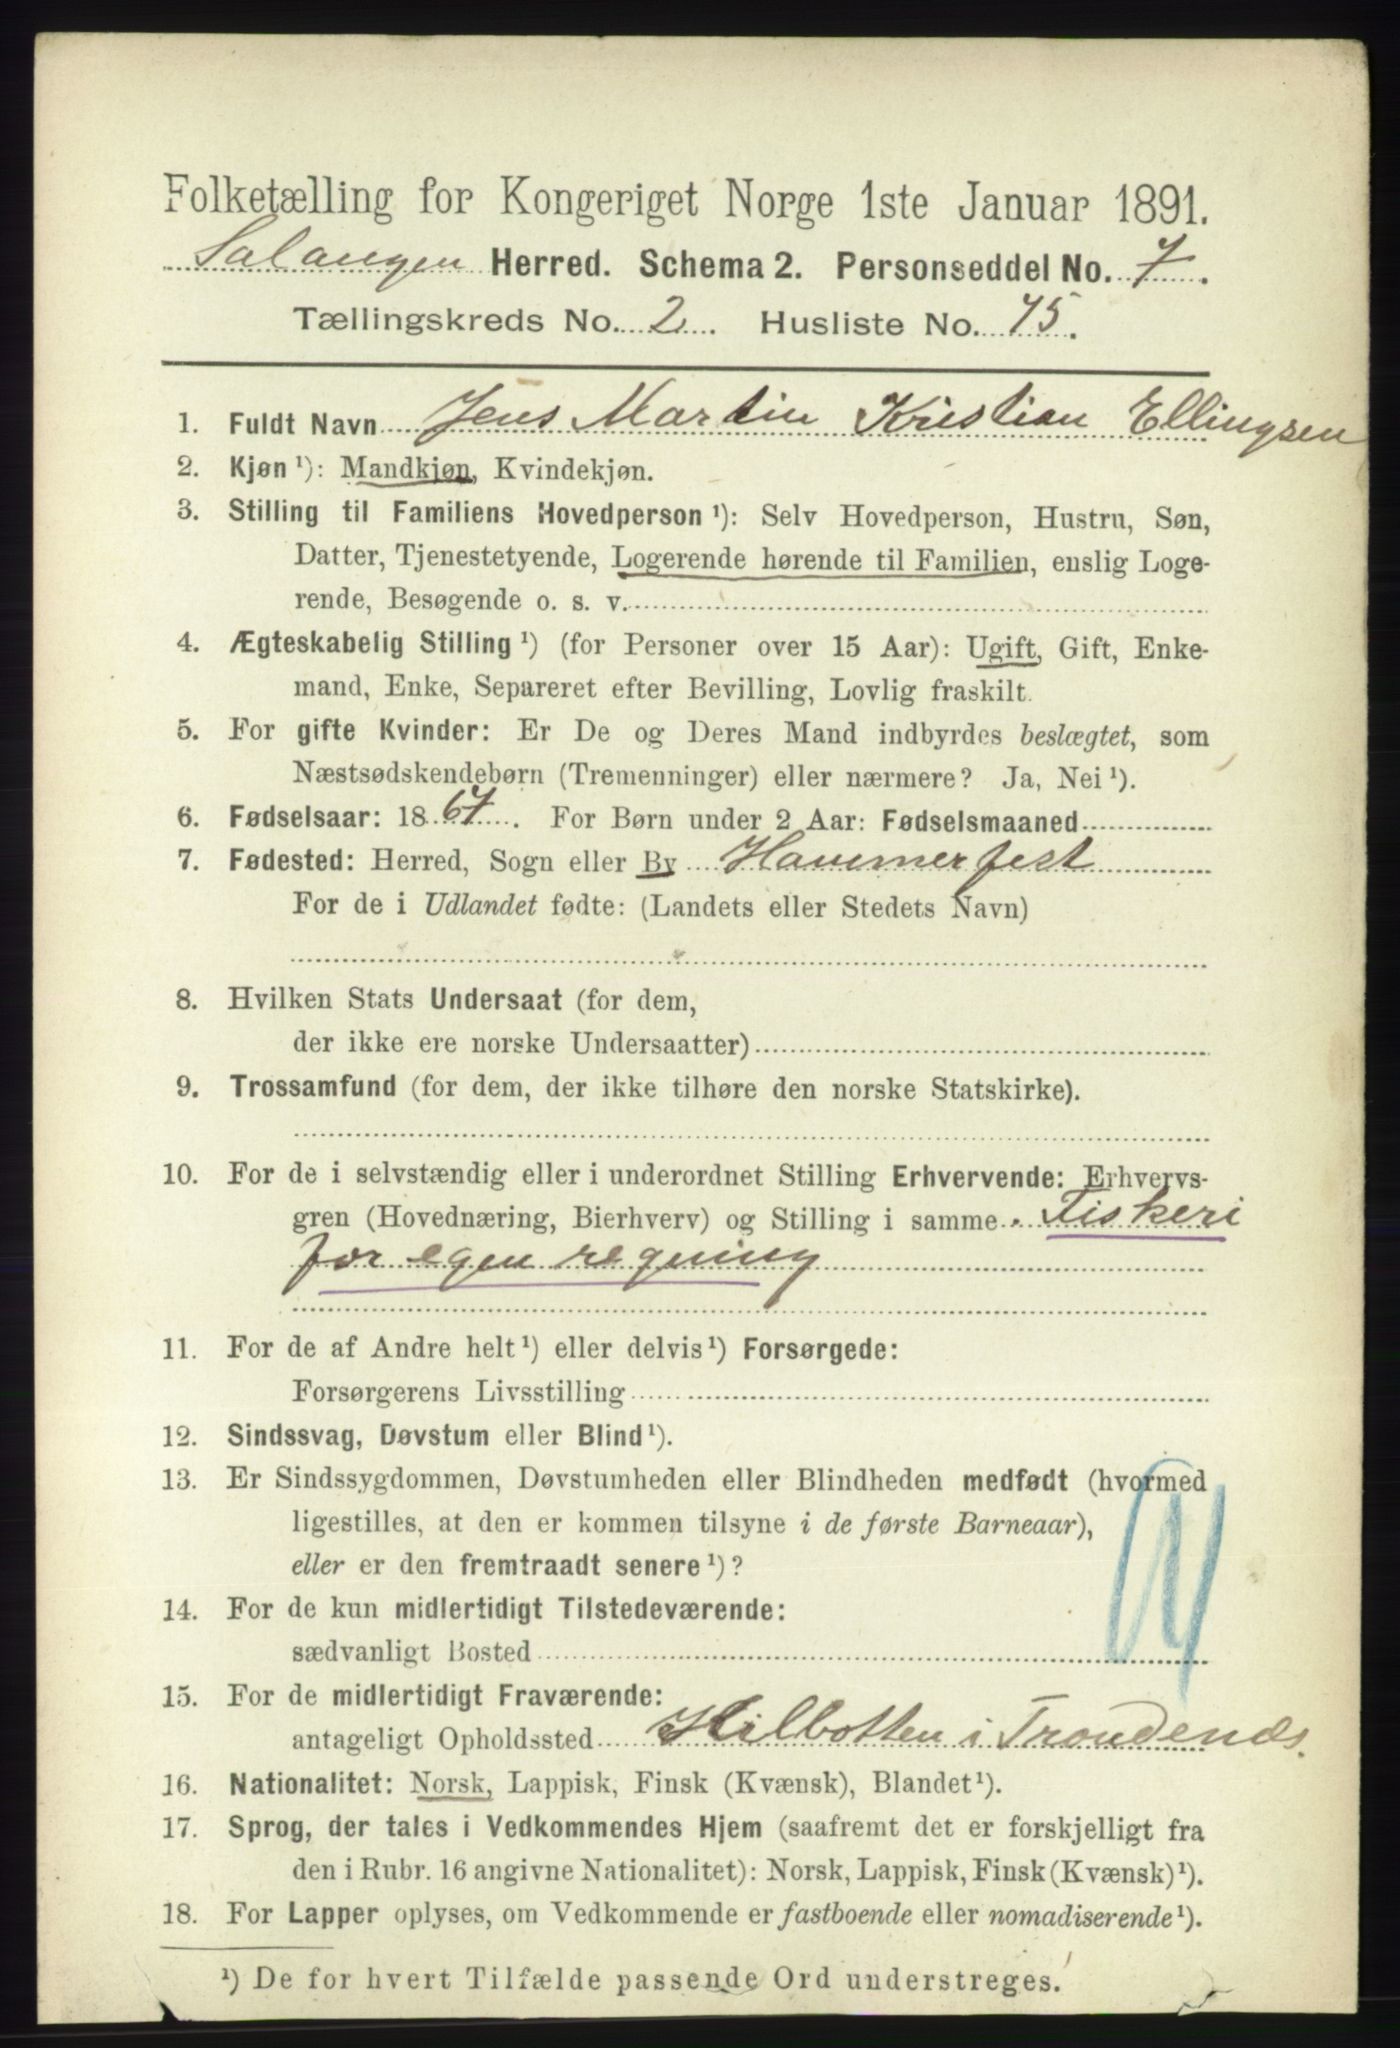 Folketælling for Kongeriget Norge 1ste Januar 1891.
Salangen Herred. Schema 2. Personseddel No. 7.
Tællingskreds No. 2. Husliste No. 75.
1. Fuldt Navn Jens Martin Kristian Ellingsen
2. Kjøn ¹): Mandkjøn, Kvindekjøn.
3. Stilling til Familiens Hovedperson ¹): Selv Hovedperson, Hustru, Søn,
Datter, Tjenestetyende, Logerende hørende til Familien, enslig Loge-
rende, Besøgende o. s. v.
4. Ægteskabelig Stilling ¹) (for Personer over 15 Aar): Ugift, Gift, Enke-
mand, Enke, Separeret efter Bevilling, Lovlig fraskilt.
5. For gifte Kvinder: Er De og Deres Mand indbyrdes beslægtet, som
Næstsødskendebørn (Tremenninger) eller nærmere? Ja, Nei ¹).
6. Fødselsaar: 1867. For Børn under 2 Aar: Fødselsmaaned
7. Fødested: Herred, Sogn eller By Hammerfest
For de i Udlandet fødte: (Landets eller Stedets Navn)
8. Hvilken Stats Undersaat (for dem,
der ikke ere norske Undersaatter)
9. Trossamfund (for dem, der ikke tilhøre den norske Statskirke).
10. For de i selvstændig eller i underordnet Stilling Erhvervende: Erhvervs-
gren (Hovednæring, Bierhverv) og Stilling i samme. Fiskeri
for egen regning
11. For de af Andre helt ¹) eller delvis ¹) Forsørgede:
Forsørgerens Livsstilling
12. Sindssvag, Døvstum eller Blind ¹).
13. Er Sindssygdommen, Døvstumheden eller Blindheden medfødt (hvormed
ligestilles, at den er kommen tilsyne i de første Barneaar),
eller er den fremtraadt senere ¹)?
14. For de kun midlertidigt Tilstedeværende:
sædvanligt Bosted
15. For de midlertidigt Fraværende:
antageligt Opholdssted Kilbotten i Trondenæs.
16. Nationalitet: Norsk, Lappisk, Finsk (Kvænsk), Blandet ¹).
17. Sprog, der tales i Vedkommendes Hjem (saafremt det er forskjelligt fra
den i Rubr. 16 angivne Nationalitet): Norsk, Lappisk, Finsk (Kvænsk) ¹).
18. For Lapper oplyses, om Vedkommende er fastboende eller nomadiserende ¹).
¹) De for hvert Tilfælde passende Ord understreges.